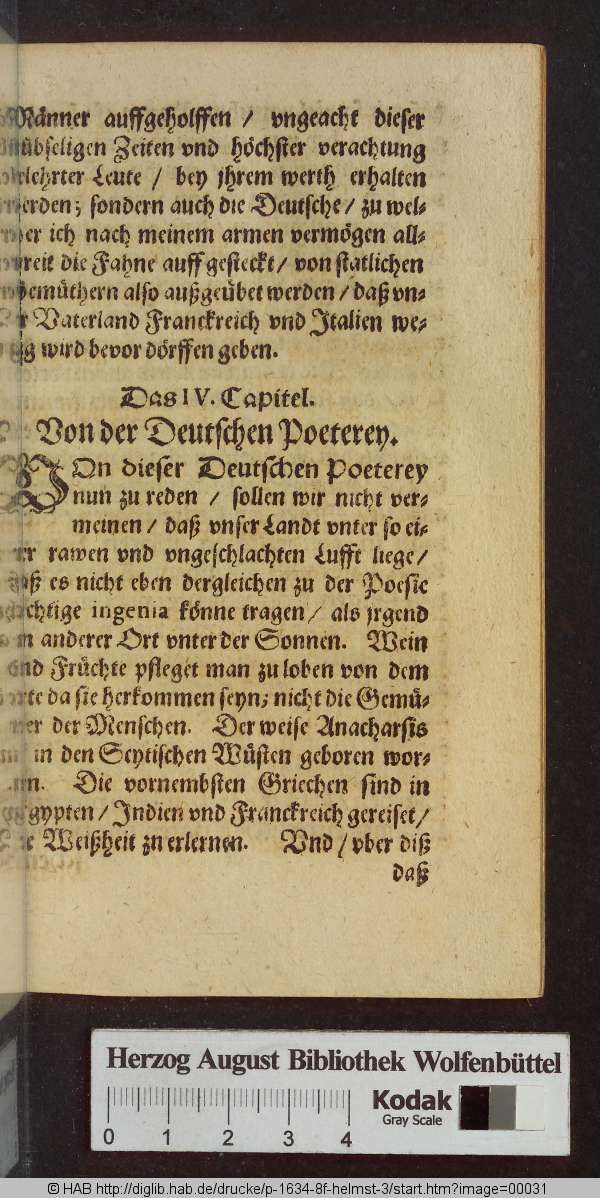 Männer auffgeholffen / vngeacht dieser
übseligen Zeiten vnd höchster verachtung
lehrter Leute / bey jhrem werth erhalten
erden; sondern auch die Deutsche / zu wel⸗
er ich nach meinem armen vermögen all⸗
reit die Fahne auff gesteckt / von statlichen
emüthern also außgeübet werden / daß vn⸗
r Vaterland Franckreich vnd Italien we⸗
g wird bevor dörffen geben.
Das IV. Capitel.
Von der Deutschen Poeterey.
VOn dieser Deutschen Poeterey
nun zu reden / sollen wir nicht ver⸗
meinen / daß vnser Landt vnter so ei⸗
er rawen vnd vngeschlachten Lufft liege /
aß es nicht eben dergleichen zu der Poesie
chtige ingenia könne tragen / als jrgend
n anderer Ort vnter der Sonnen. Wein
nd Früchte pfleget man zu loben von dem
rte da sie herkommen seyn; nicht die Gemü⸗
er der Menschen. Der weise Anacharsis
in den Scytischen Wüsten geboren wor⸗
n. Die vornembsten Griechen sind in
gypten / Indien vnd Franckreich gereiset /
e Weißheit zu erlernen. Vnd / vber diß
daß
Herzog August Bibliothek Wolfenbüttel
Kodak
Gray Scale
0 1 2 3 4
© HAB http://diglib.hab.de/drucke/p-1634-8f-helmst-3/start.htm?image=00031